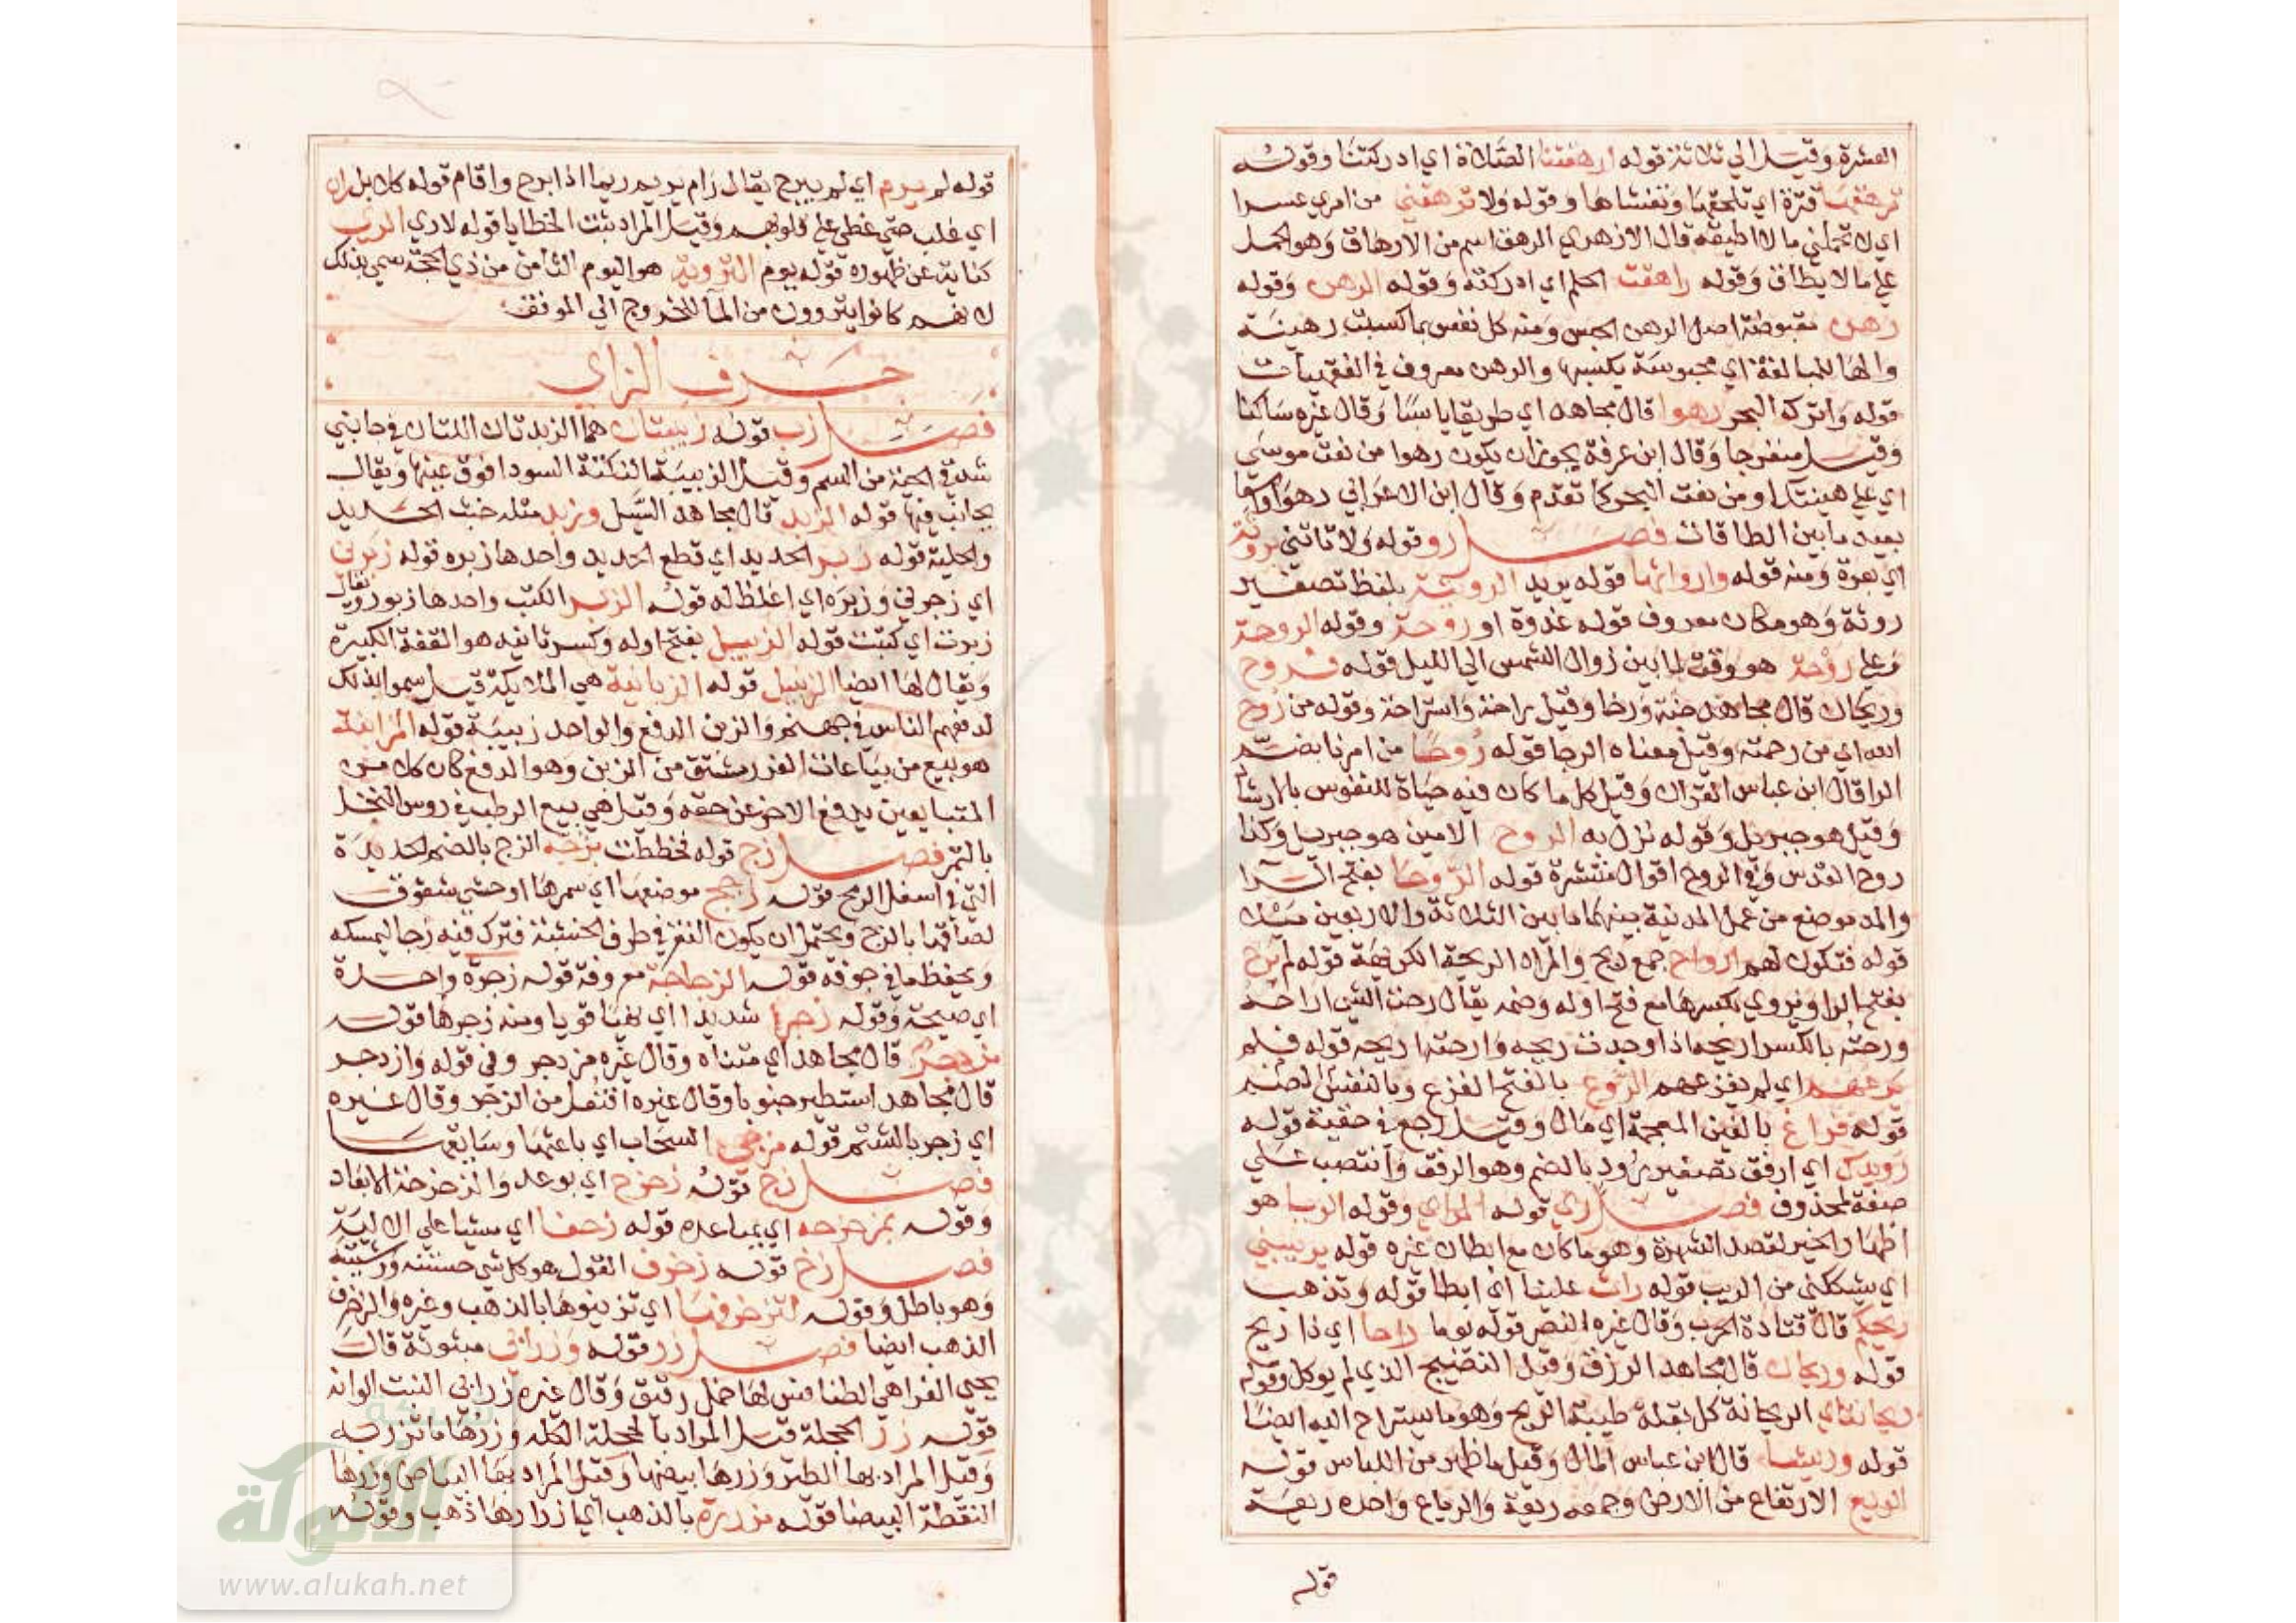 العشرة وقيل الي ثلاثة قوله ارهقتنا الصلاة اي ادركتنا وقوله
ترهقها قترة اي تلحقها وتغشاها وقوله ولا ترهقني من امري عسرا
اي لا تحملني ما لا اطيقه قال الازهري الرهق اسم من الارهاق وهو الحمل
علي ما لا يطاق وقوله راهقت الحلم اي ادركته وقوله الرهن وقوله
رهن مقبوضة اصل الرهن الحبس ومنه كل نفس بما كسبت رهينة
والها للمبالغة اي محبوسة بكسبها والرهن معروف في الفقهيات
قوله واترك البحر رهوا قال مجاهد اي طريقا يابسا وقال غيره ساكنا
وقيل منفرجا وقال ابن عرفة يجوز ان يكون رهوا من نعت موسي
اي علي هينتك او من نعت البحر كما تقدم وقال ابن الاعرابي رهوا واسعا
بعيد ما بين الطاقات فصل رو قوله ولا تاتني بروثة
اي بعرة ومنه قوله وارواثها قوله يريد الرويثة بلفظ تصغير
روثة وهو مكان معروف قوله غدوة او روحة وقوله الروحة
من علي روحة هو وقت لما بين زوال الشمس الي الليل قوله فروح
وريحان قال مجاهد جنة ورخا وقيل راحة واستراحة وقوله من روح
الله اي من رحمته وقيل معناه الرجا قوله روحا من امرنا بضم
الرا قال ابن عباس القران وقيل كل ما كان فيه حياة للنفوس بالارشاد
وقيل هو جبريل وقوله نزل به الروح الامين هو جبريل وكذا
روح القدس وفي الروح اقوال منتشرة قوله الروحا بفتح الرا
والمد موضع من عمل المدينة بينهما ما بين الثلاثة والاربعين ميلا
قوله فتكون لهم ارواح جمع ريح والمراد الريحة الكريهة قوله لم يرح
بفتح الرا ويروي بكسرها مع فتح اوله وضمه يقال رحت الشي اراحه
ورحته بالكسر اريحه اذا وجدت ريحه وارحته اريحه قوله فلم
يرعهم اي لم يفزعهم الروع بالفتح الفزع وبالنفس الضم
قوله فراغ بالغين المعجمة اي مال وقيل رجع في خفية قوله
رويدك اي ارفق تصغير رود بالضم وهو الرفق وانتصب علي
صفة لمحذوف فصل ري قوله المراي وقوله الريا هو
اظهار الخير لقصد الشهرة وهو ما كان مع ابطان غيره قوله يريبني
اي يشككني من الريب قوله راث علينا اي ابطا قوله وتذهب
ريحكم قال قتادة الحرب وقال غيره النصر قوله يوما راحا اي ذا ريح
قوله وريحان قال مجاهد الرزق وقيل النضيج الذي لم يوكل وقوله
ريحانتاي الريحانة كل بقلة طيبة الريح وهو ما يستراح اليه ايضا
قوله وريشا قال ابن عباس المال وقيل ما ظهر من اللباس قوله
الريع الارتفاع من الارض وجمعه ريعة والرياع واحده ريعة
قوله
قوله لم يرم اي لم يبرح يقال رام يريم ريما اذا برح واقام قوله كلا بل ران
اي غلب حتي غطي علي قلوبهم وقيل المراد ثبت الخطايا قوله لاري الري
كناية عن ظهوره قوله يوم التروية هو اليوم الثامن من ذي الحجة سمي بذلك
لانهم كانوا يتروون من الما للخروج الي الموقف
حرف الزاي
فصل زب قوله زبيبتان هما الزبدتان اللتان في جانبي
شدقي الحية من السم وقيل الزبيبة النكتة السودا فوق عينها ويقال
بجانب فيها قوله الزبد قال مجاهد السيل وزبد مثله خبث الحديد
والحلية قوله زبر الحديد اي قطع الحديد واحدها زبره قوله زبرني
اي زجرني وزبره اي اغلظ له قوله الزبر الكتب واحدها زبور ويقال
زبرت اي كتبت قوله الزبيل بفتح اوله وكسر ثانيه هو القفة الكبيرة
ويقال لها ايضا الزنبيل قوله الزبانية هي الملايكة قيل سموا بذلك
لدفعهم الناس في جهنم والزبن الدفع والواحد زبيبة قوله المزابنة
هو بيع من بياعات الغرر مشتق من الزبن وهو الدفع كان كل من
المتبايعين يدفع الاخر عن حقه وقيل هي بيع الرطب في روس النخل
بالتمر فصل زج قوله فخططت بزجه الزج بالضم الحديدة
التي في اسفل الرمح قوله زجج موضعها اي سمرها او حشي شقوق
لصاقها بالزج ويحتمل ان يكون النقر في طرف الخشبة فترك فيه زجا ليمسكه
ويحفظ ما في جوفه قوله الزجاجة معروفة قوله زجرة واحدة
اي صيحة وقوله زجرا شديدا اي نهيا قويا ومنه زجرها قوله
مزدجر قال مجاهد اي متناه وقال غيره مزدجر وفي قوله وازدجر
قال مجاهد استطير جنونا وقال غيره افتعل من الزجر وقال غيره
اي زجر بالشتم قوله مزجي السحاب اي باعثها وسايقها
فصل زح قوله زحزح اي بوعد والزحزحة الابعاد
وقوله بمزحزحه اي بمباعده قوله زحفا اي مشيا علي الالية
فصل زخ قوله زخرف القول هو كل شي حسنته وزينته
وهو باطل وقوله لتزخرفنها اي تزينوها بالذهب وغيره والزخرف
الذهب ايضا فصل زر قوله وزرابي مبثوثة قال
يحيي الفرا هي الطنافس لها خمل رقيق وقال غيره زرابي النبت الوانه
قوله زر الحجلة قيل المراد بالحجلة الكلة وزرها ما تزر به
وقيل المراد بها الطير وزرها بيضها وقيل المراد بها البياض وزرها
النقطة البيضا قوله مزررة بالذهب اي ازرارها ذهب وقوله
شبكة
الألوكة
www.alukah.net